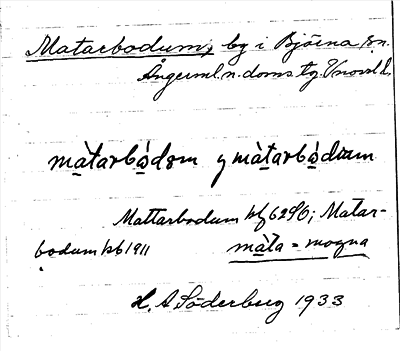 Matarbodum, by i Björna sn.
Ångerml. n. doms. tg. V norrl. l.
màtarbǻdøm y màtarbǻdum
Mattarbodum kb 6290; Matar-
bodum kb 1911 màta = mogna
H. A. Söderberg 1933